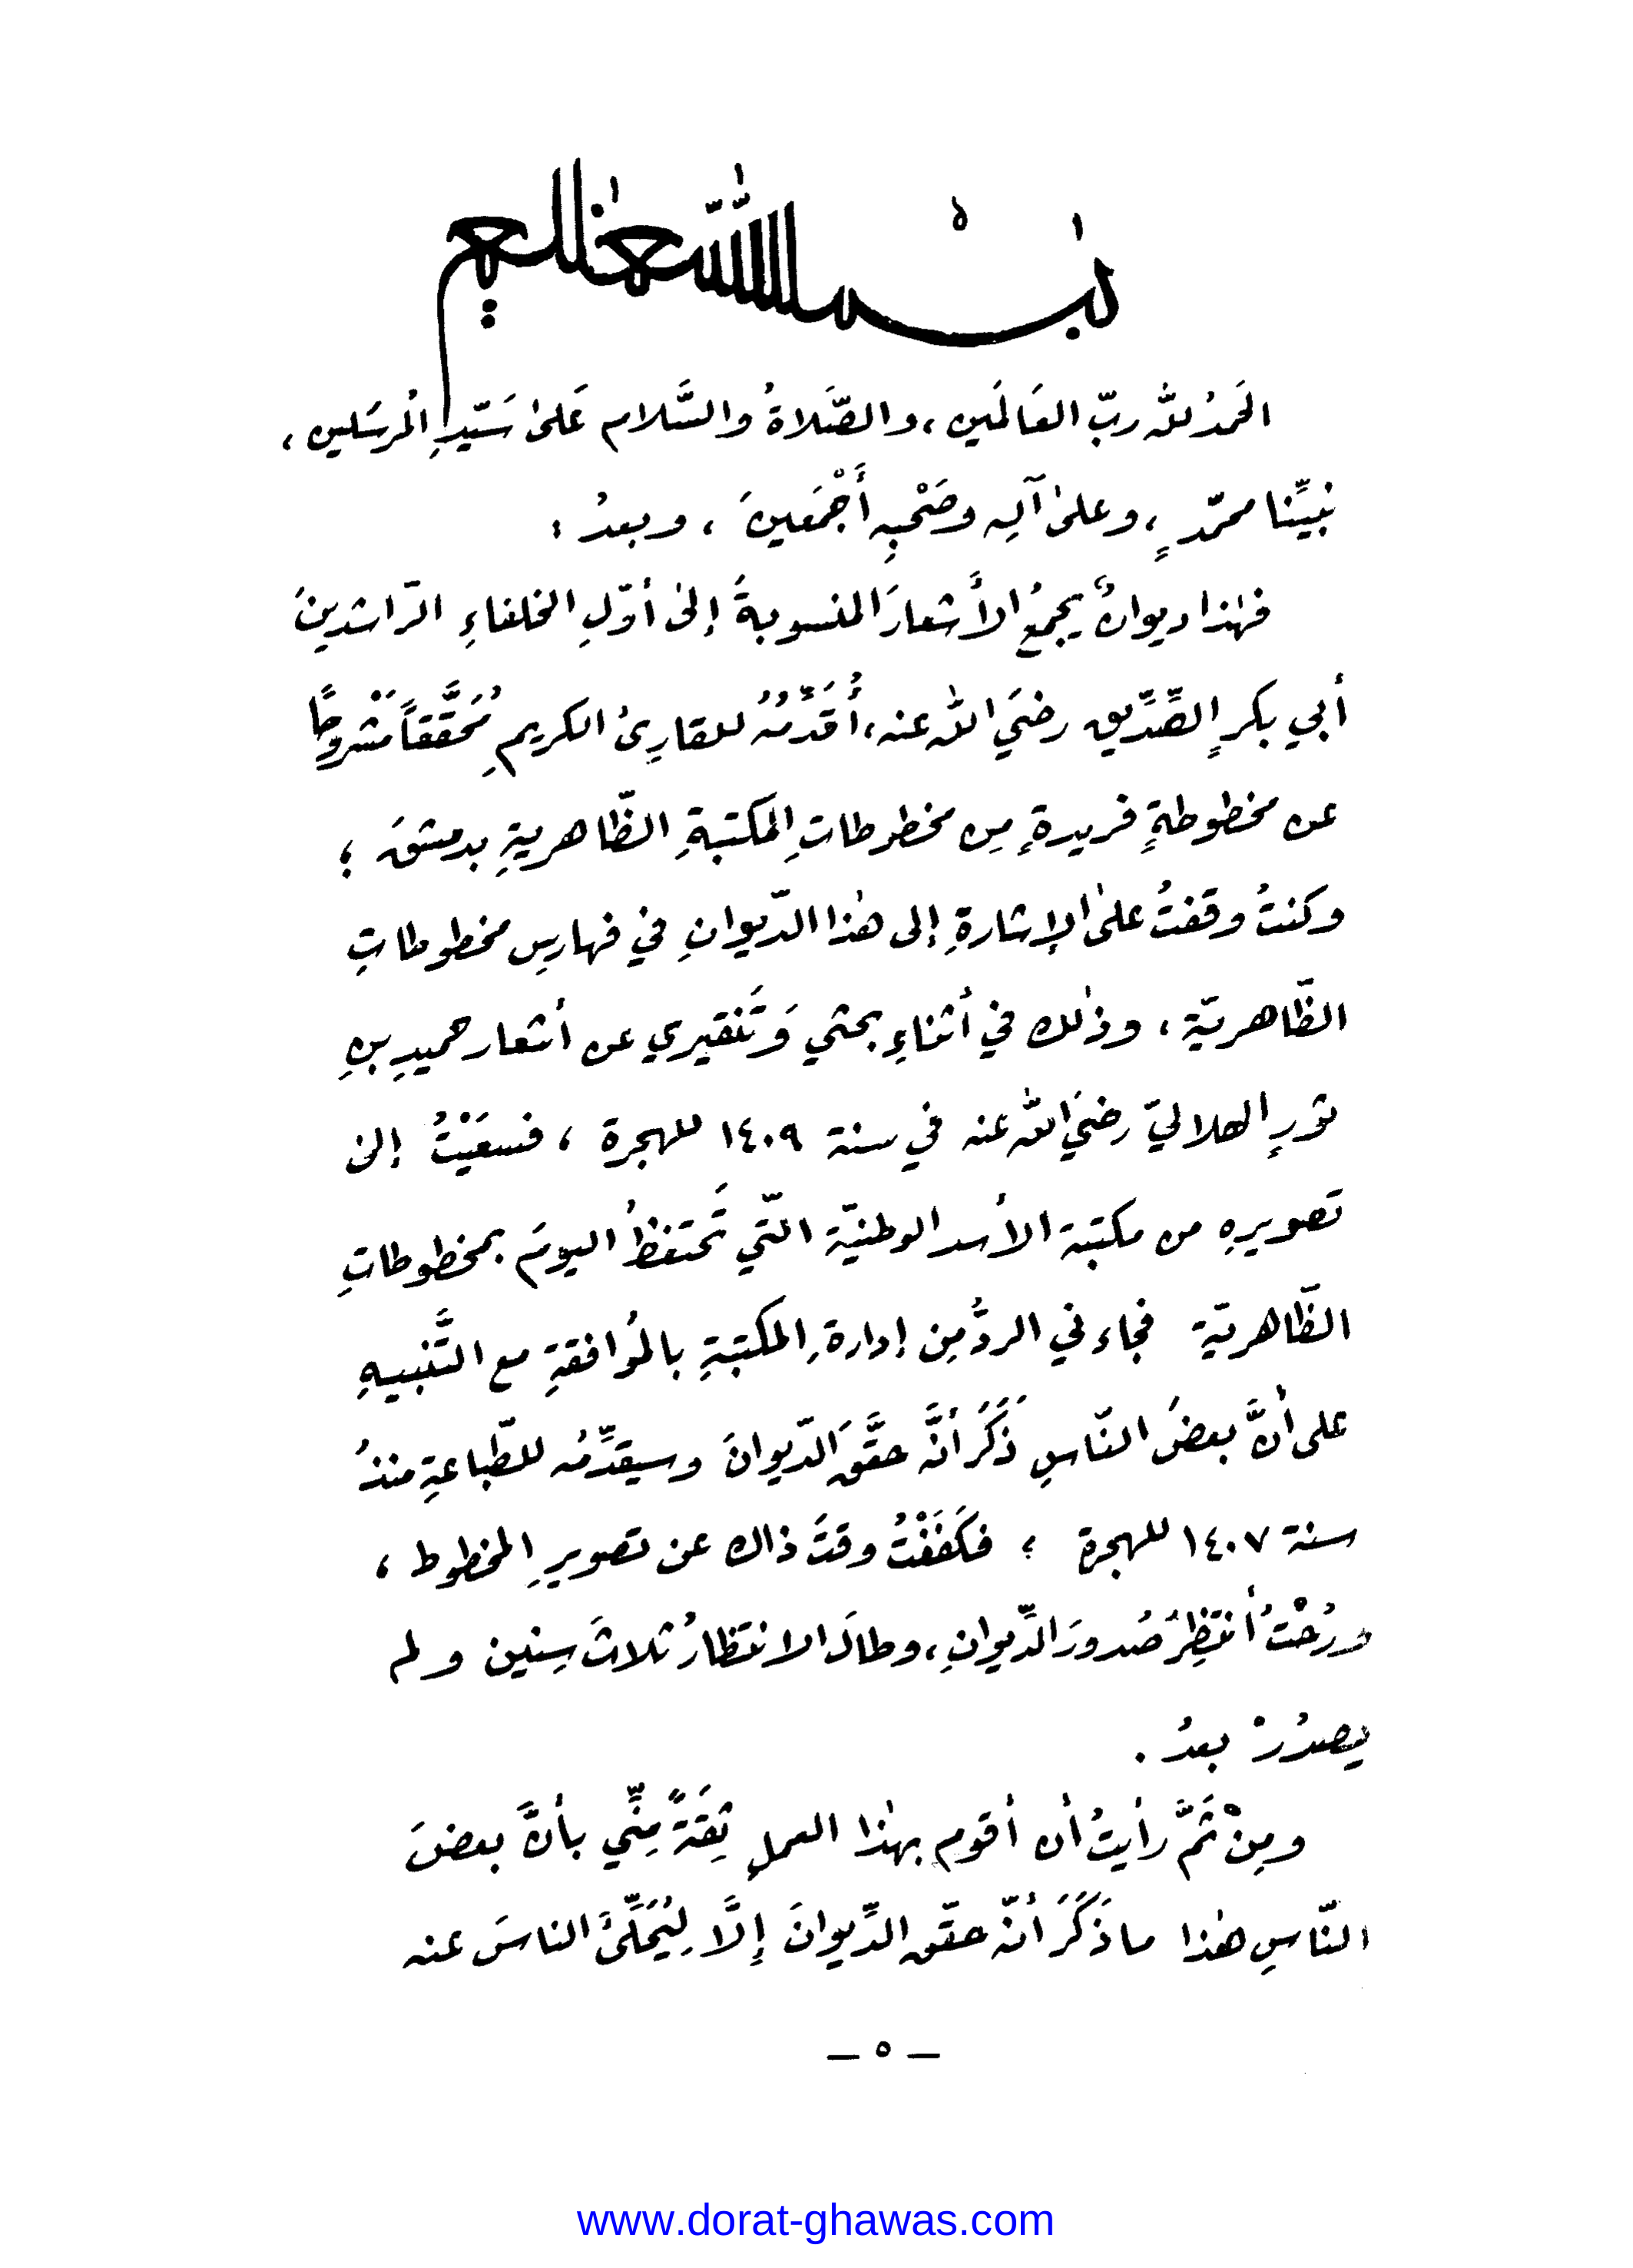 بسم الله الرحمن الرحيم
الحَمدُ للّه ربّ العَالمَين ، والصَّلاةُ والسَّلام عَلىٰ سَيّدِ المُرسَلين ،
نبيِّنا محمّدٍ ، وعلىٰ آلِه وصَحْبِه أَجْمَعينَ ، وبعدُ :
فهٰذا ديوانٌ يجمعُ الأَشعارَ المنسوبةَ إلىٰ أوّلِ الخلفاءِ الرّاشدينَ
أبي بكرٍ الصِّدِّيق رضيَ اللّٰه عنه ، أُقَدِّمُهُ للقارِئ الكريمِ مُحَقَّقاً مَشْروحاً
عن مخطوطةٍ فريدةٍ مِن مخطوطاتِ المكتبةِ الظّاهريةِ بدمشقَ ؛
وكنتُ وقفتُ علىٰ الإشارةِ إلى هٰذا الدّيوانِ في فهارسِ مخطوطاتِ
الظّاهريّة ، وذٰلك في أثناءِ بحثي وَتَنقيري عن أشعار حميدِ بنِ
ثورٍ الهلاليّ رضيَ اللّٰه عنه في سنة ١٤٠٩ للهجرة ، فسعَيْتُ إلىٰ
تصويرِهِ من مكتبة الأسد الوطنيّة الّتي تَحتفظُ اليومَ بمخطوطاتِ
الظّاهريّة فجاءني الردُّ مِن إدارةِ المكتبةِ بالمُوافقةِ مع التَّنبيهِ
على أنَّ بعضَ النّاسِ ذَكَرَ أنَّه حقَّقَ الدّيوانَ وسيقدِّمُه للطّباعةِ منذُ
سنة ١٤٠٧ للهجرة ؛ فكَفَفْتُ وقتَ ذاك عن تصويرِ المخطوط ،
ورُحْتُ أنتَظِرُ صُدورَ الدِّيوانِ ، وطالَ الانتظارُ ثلاثَ سِنين ولم
يصدُرْ بعدُ .
ومِنْ ثَمَّ رأيتُ أن أقوم بهٰذا العملِ ثِقَةً مِنِّي بأنَّ بعضَ
النّاسِ هٰذا ما ذَكَرَ أنّه حقّق الدِّيوانَ إلَّا لِيُحَلِّئَ الناسَ عنه
— ٥ —
www.dorat-ghawas.com